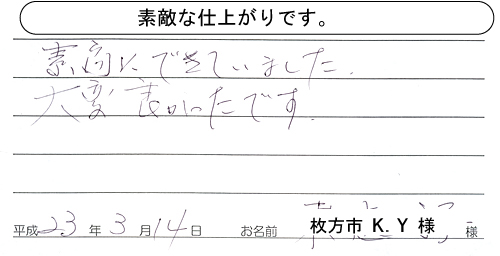 素敵な仕上がりです。
素敵にできていました.
大変良かったです.
平成23年3月14日 お名前 枚方市 K.Y 様 様